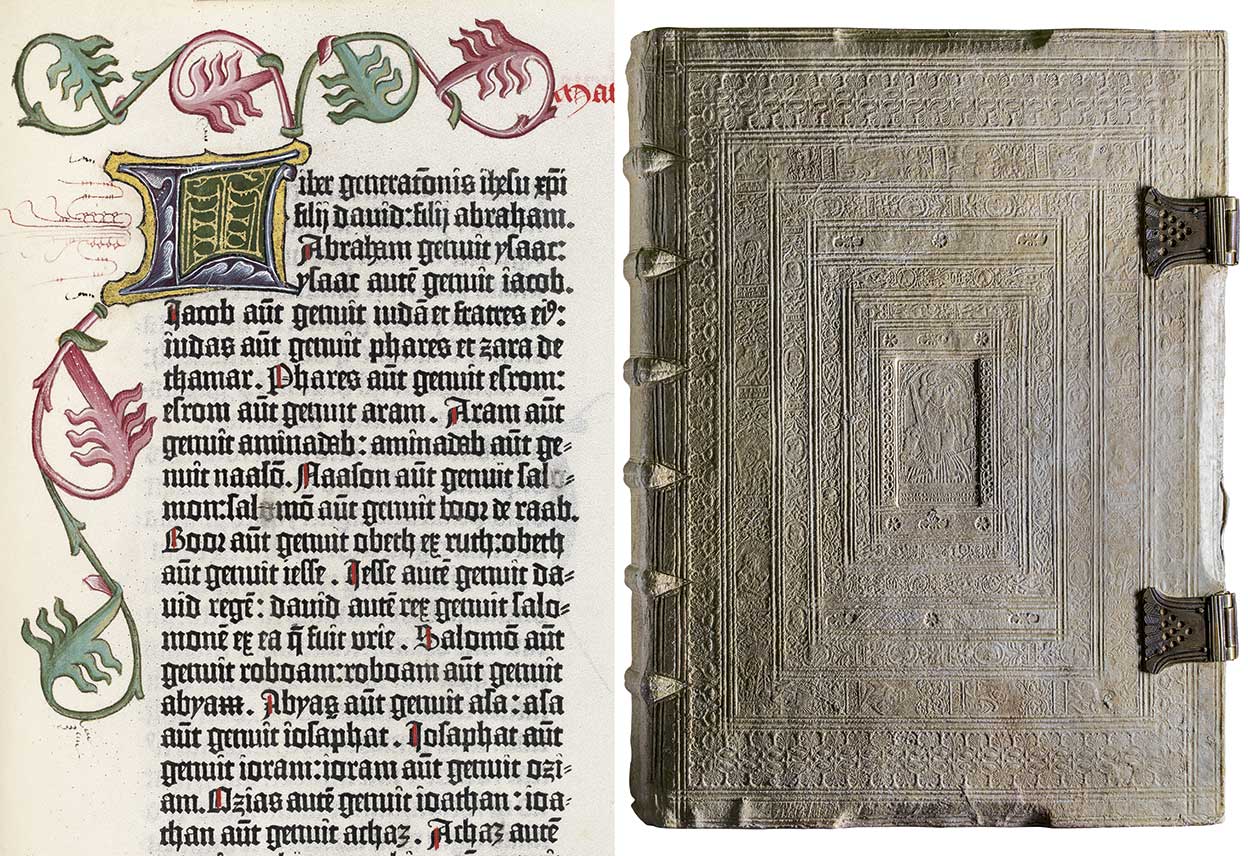 Mat
Liber generatōnis ihesu xpi
filij david: filij abraham.
Abraham genuit ysaac:
ysaac autē genuit iacob.
Jacob aūt genuit iudā et fratres eiꝰ:
iudas aūt genuit phares et zara de
thamar. Phares aūt genuit esrom:
esrom aūt genuit aram. Aram aūt
genuit aminadab: aminadab aūt ge-
nuit naasō. Naason aūt genuit sal-
mon: salmō aūt genuit booz de raab.
Booz aūt genuit obeth ex ruth: obeth
aūt genuit iesse. Jesse autē genuit da-
uid regē: david autē rex genuit salo-
monē ex ea q̄ fuit vrie. Salomō aūt
genuit roboam: roboam aūt genuit
abyam. Abyas aūt genuit asa: asa
aūt genuit iosaphat. Josaphat aūt
genuit ioram: ioram aūt genuit ozi-
am. Ozias autē genuit ioathan: ioa-
than aūt genuit achaz. Achaz autē